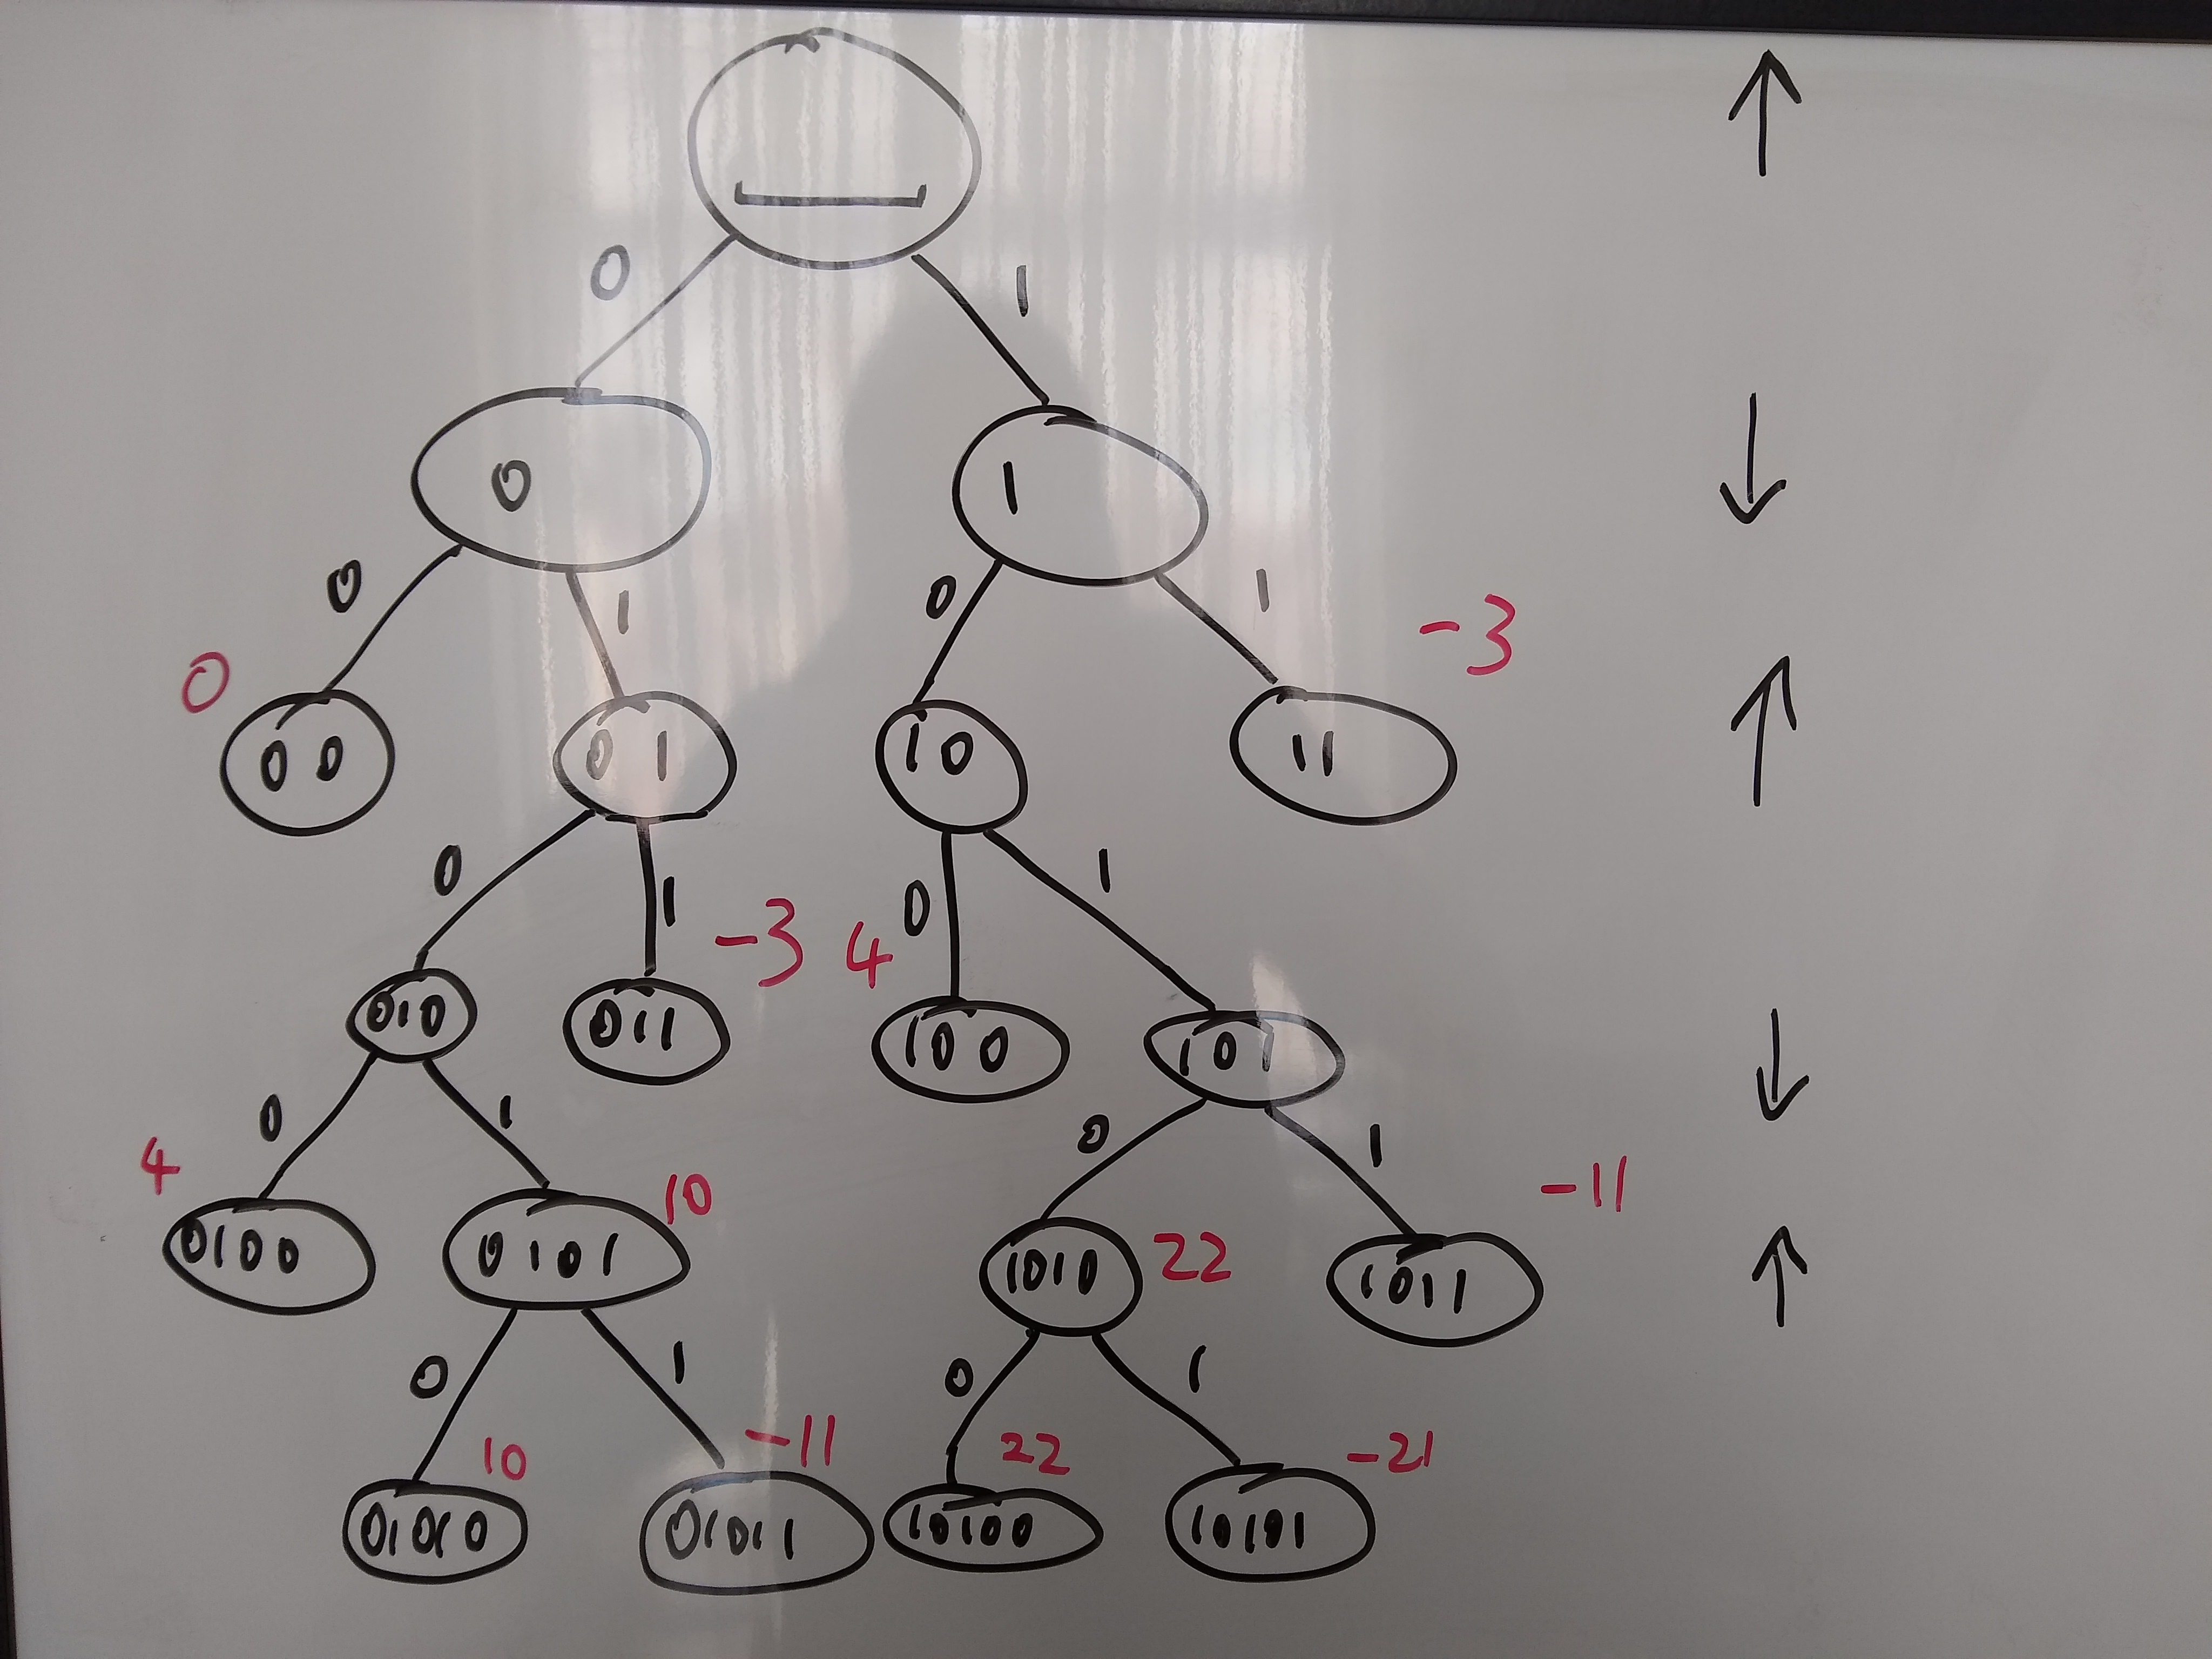 0
1
0
1
0
1
0
1
-3
0
00
01
10
11
0
1
0
1
-3
4
010
011
100
101
0
1
0
1
4
10
-11
0100
0101
1010
22
1011
0
1
0
1
10
-11
22
-21
01010
01011
10100
10101